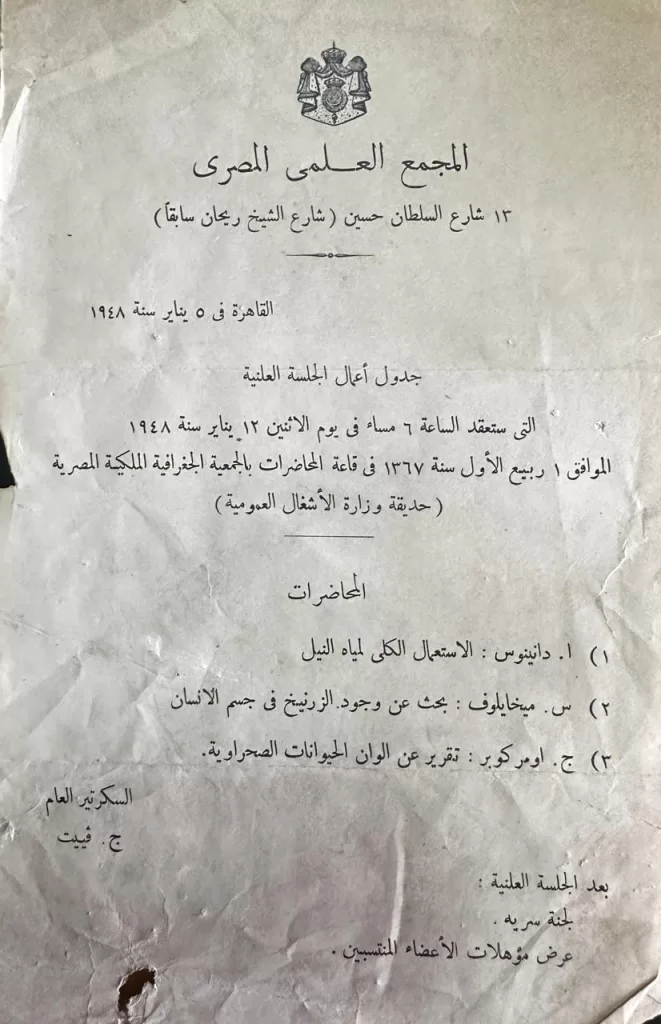 المجمع العلمى المصرى
١٣ شارع السلطان حسين (شارع الشيخ ريحان سابقاً)
القاهرة فى ٥ يناير سنة ١٩٤٨
جدول أعمال الجلسة العلنية
التى ستعقد الساعة ٦ مساء فى يوم الاثنين ١٢ يناير سنة ١٩٤٨
الموافق ١ ربيع الأول سنة ١٣٦٧ فى قاعة المحاضرات بالجمعية الجغرافية الملكية المصرية
(حديقة وزارة الأشغال العمومية)
المحاضرات
١) ا. دانينوس : الاستعمال الكلى لمياه النيل
٢) س. ميخايلوف : بحث عن وجود الزرنيخ فى جسم الانسان
٣) ج. اومركوبر : تقرير عن الوان الحيوانات الصحراوية.
السكرتير العام
ج. ڤييت
بعد الجلسة العلنية :
لجنة سريه .
عرض مؤهلات الأعضاء المنتسبين .